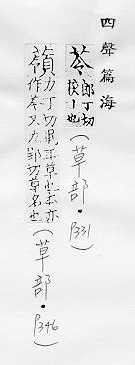 四聲篇海
苓 郎丁切
茯丨也
(草部·P331)
力丁切鼠耳草也亦
作苓又力郢切草名也
(草部·P346)